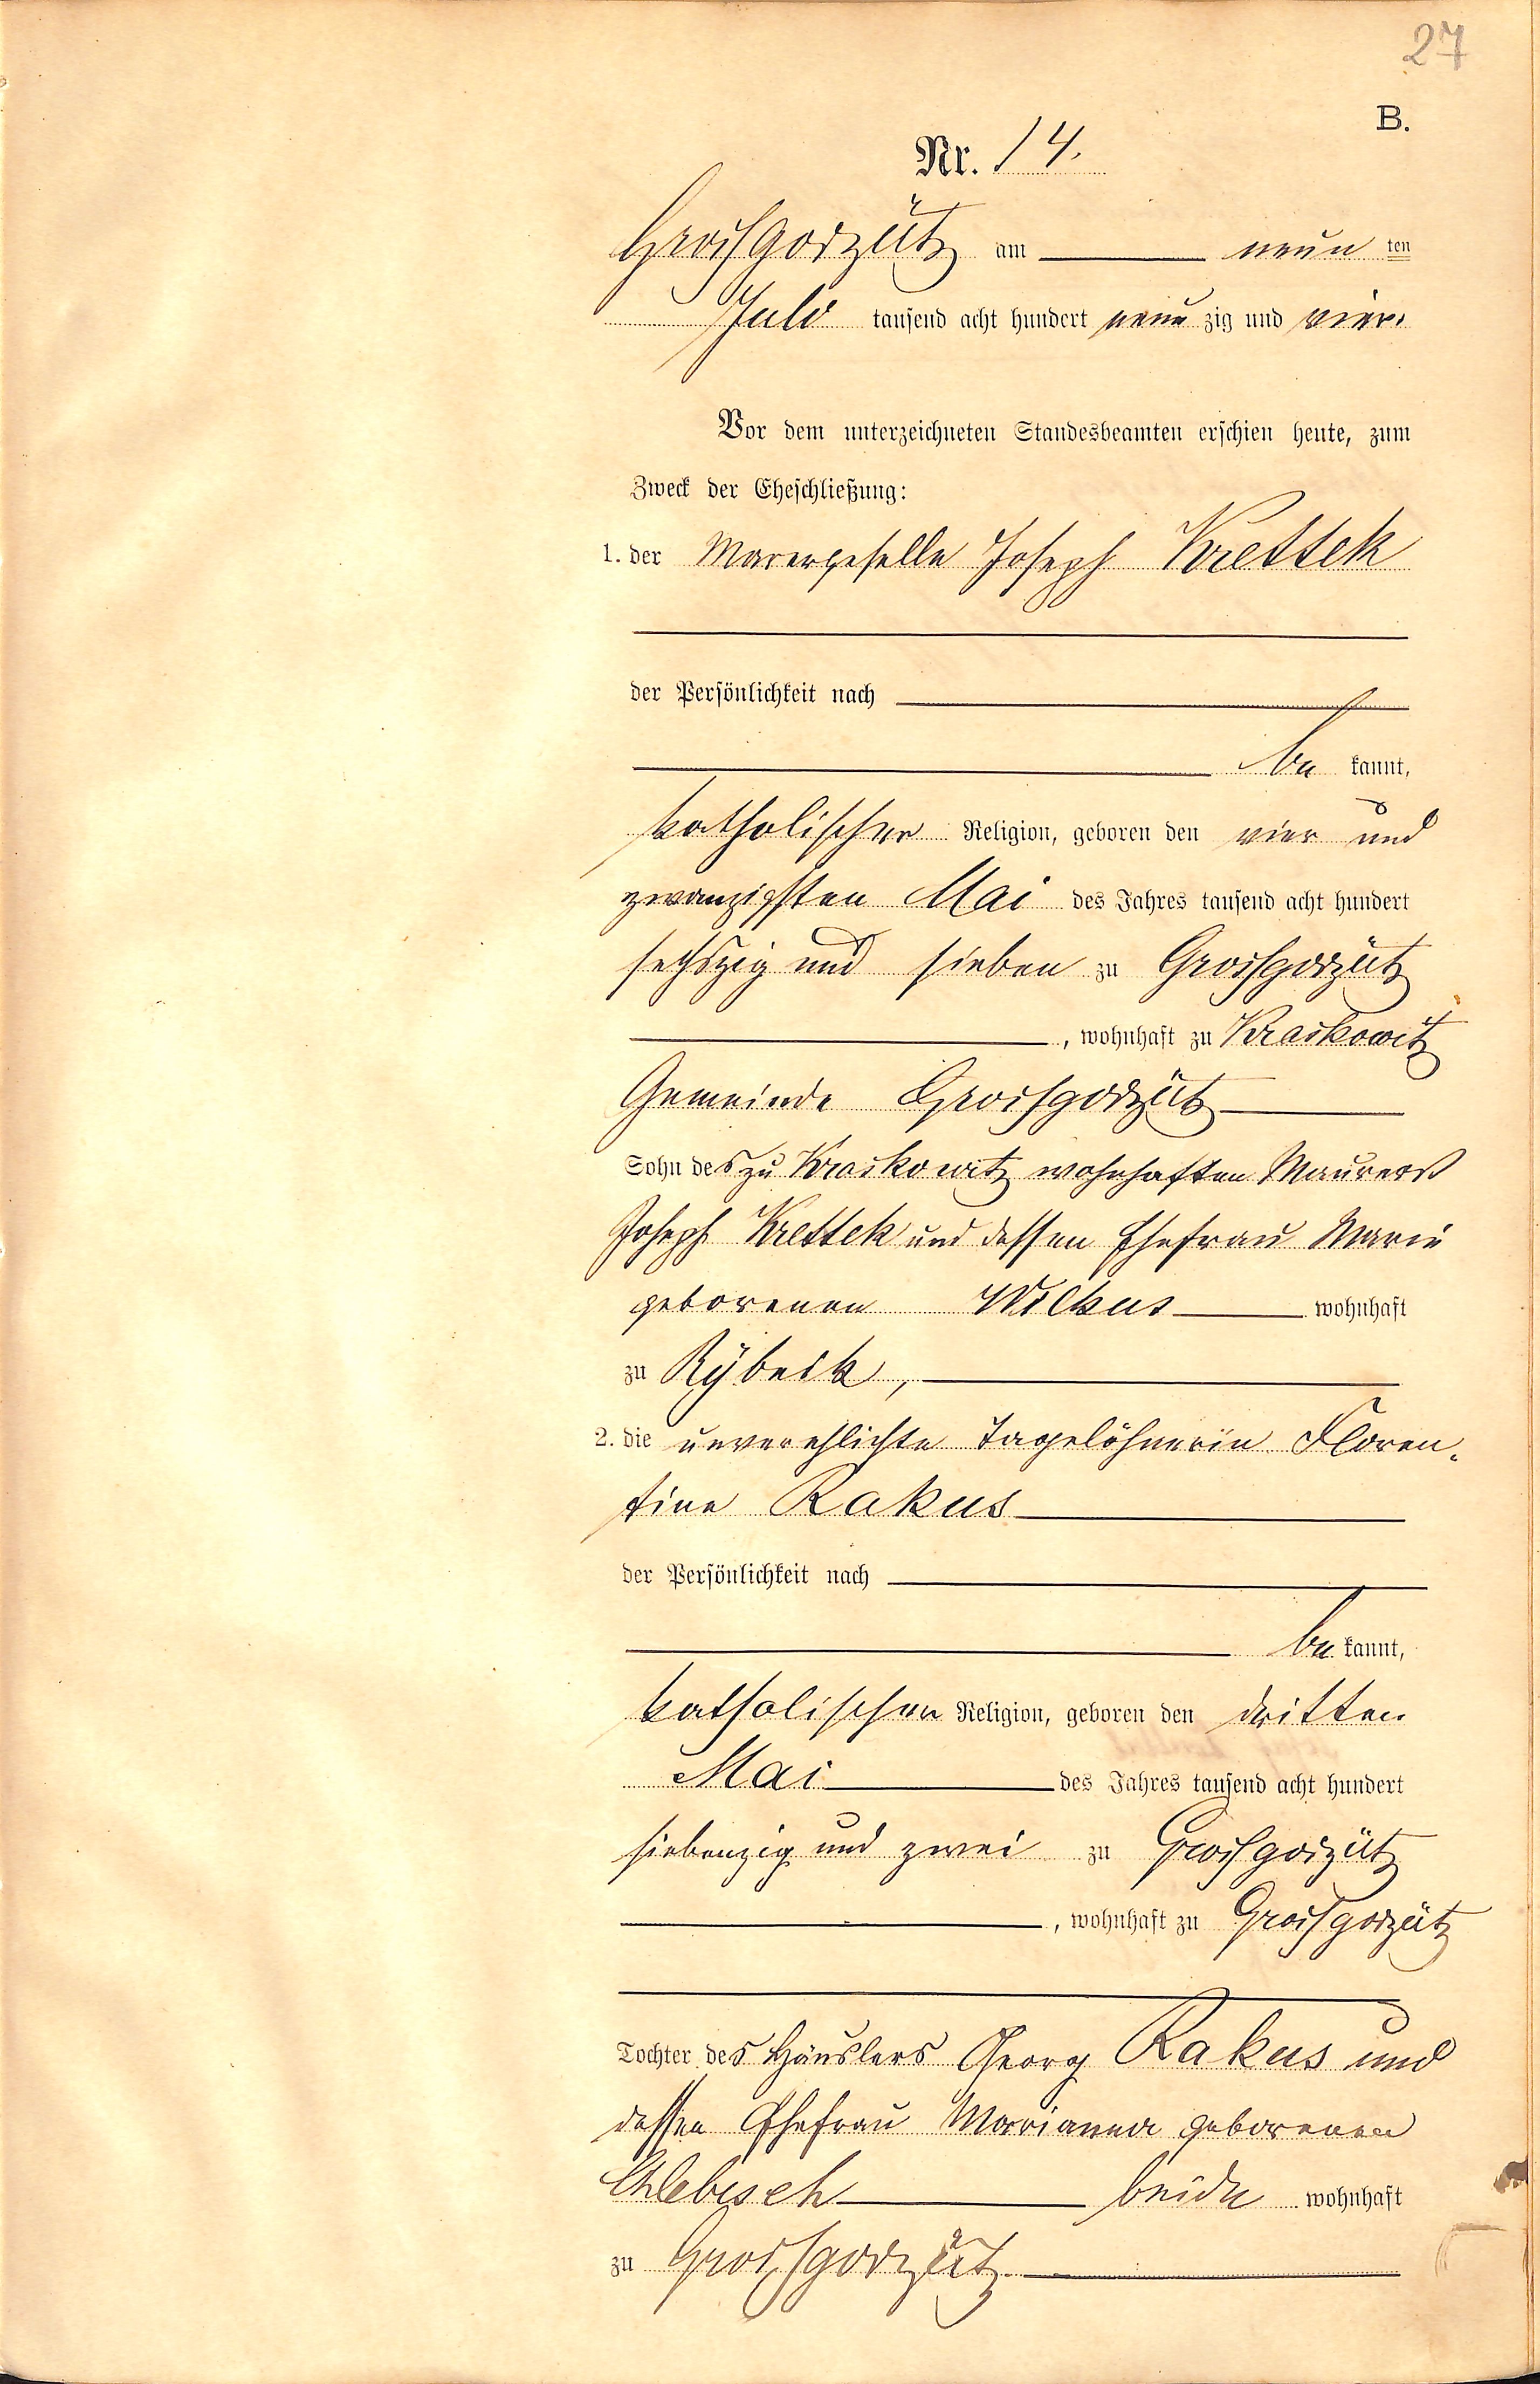 27
B.
Nr. 14.
Grosgorzütz am neun ten
Juli tausend acht hundert neun zig und vier.
Vor dem unterzeichneten Standesbeamten erschien heute, zum
Zweck der Eheschließung:
1. der Marergeselle Joseph Krettek
der Persönlichkeit nach
be kannt,
katholischer Religion, geboren den vier und
zwanzigsten Mai des Jahres tausend acht hundert
sechszig und sieben zu Grosgorzütz
, wohnhaft zu Kraskowitz
Gemeinde Grosgorzütz
Sohn des zu Kraskowitz wohnhaften Maurers
Joseph Krettek und dessen Ehefrau Marie
geborenen Wilkus wohnhaft
zu Rybnik,
2. die unverehlichte Tagelöhnerin Floren-
tine Rakus
der Persönlichkeit nach
be kannt,
katholischer Religion, geboren den dritten
Mai des Jahres tausend acht hundert
siebenzig und zwei zu Grosgorzütz
, wohnhaft zu Grosgorzütz
Tochter des Häuslers Georg Rakus und
dessen Ehefrau Marianna geborenen
beide wohnhaft
zu Grosgorzütz